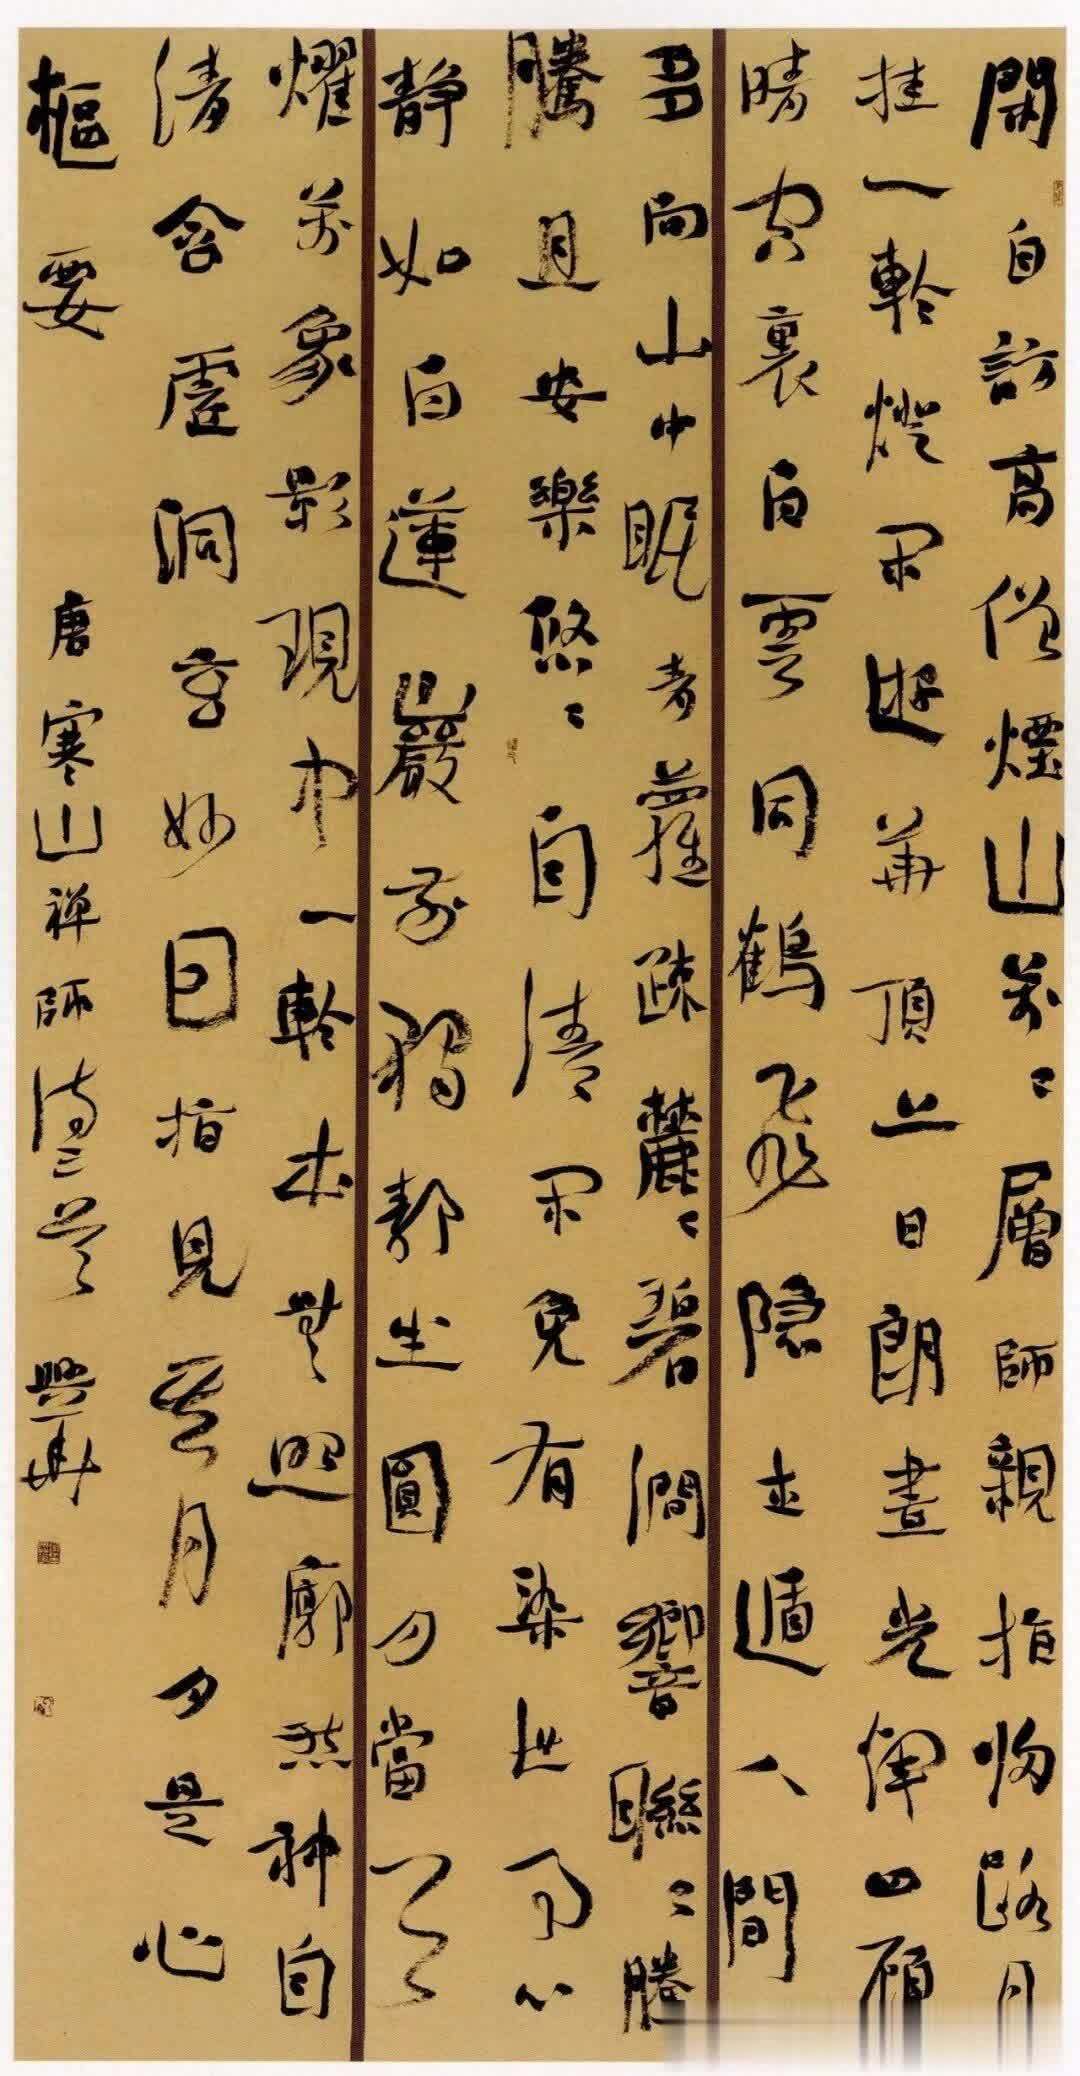 閑自訪高僧煙山萬〻層師親指歸路月
挂一輪燈閑遊華頂上日朗晝光輝四顧
晴空裏白雲同鶴飛隱士遁人間
多向山中眠青蘿疏麓〻碧澗響聯〻騰
騰且安樂悠〻自清閑免有染世事心
靜如白蓮巖前獨靜坐圓月當天
耀萬象影現中一輪本無照廓然神自
清含虛洞玄妙因指見其月月是心
樞要 唐寒山禪師詩三首 興華